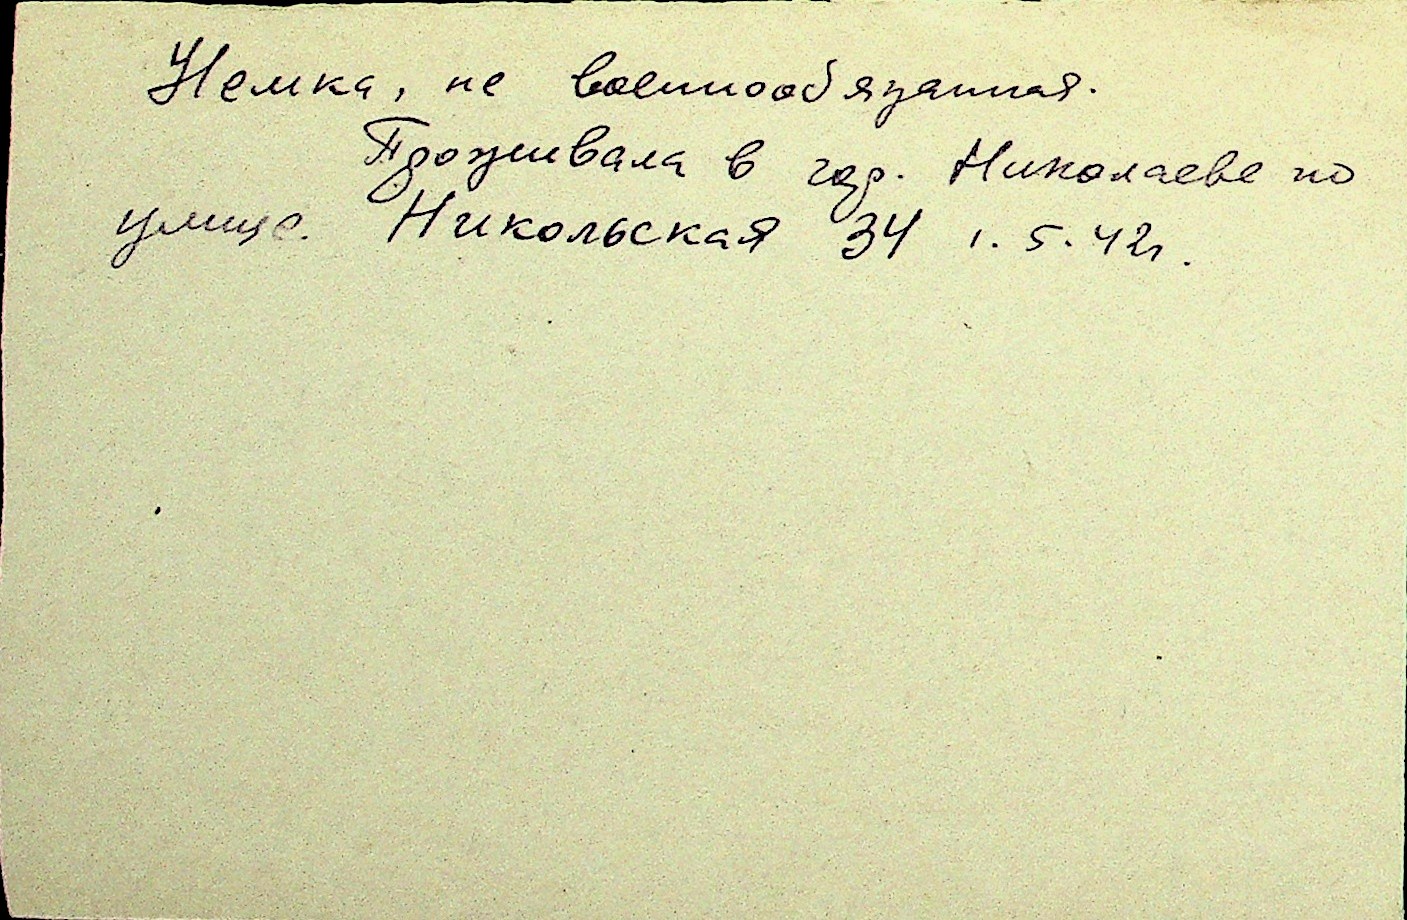 Немка, не военнообязанная.
Проживала в гор. Николаеве по
улице. Никольская 34 1.5.42г.